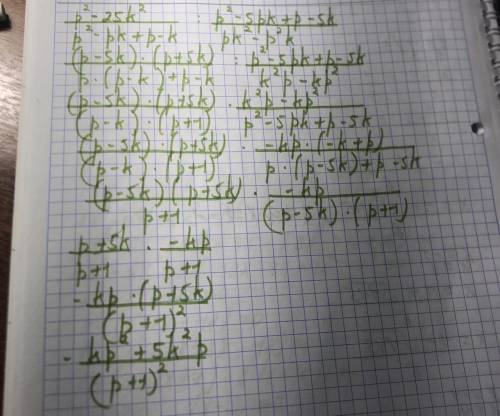 p²-25k² / p²-pk+p-k : p²-5pk+p-5k / pk²-p²k
(p-5k)·(p+5k) / p·(p-k)+p-k : p²-5pk+p-5k / k²p-kp²
(p-5k)·(p+5k) / (p-k)·(p+1) · k²p-kp² / p²-5pk+p-5k
(p-5k)·(p+5k) / (p-k)·(p+1) · -kp·(-k+p) / p·(p-5k)+p-5k
(p-5k)(p+5k) / p+1 · -kp / (p-5k)·(p+1)
p+5k / p+1 · -kp / p+1
- kp·(p+5k) / (p+1)²
- kp²+5k²p / (p+1)²